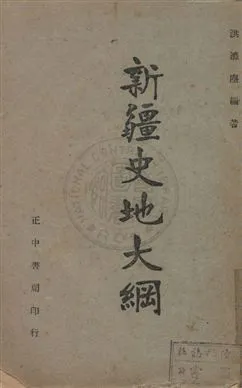 洪滌塵編著
新疆史地大綱
正中書局印行
NATIONAL CENTRAL